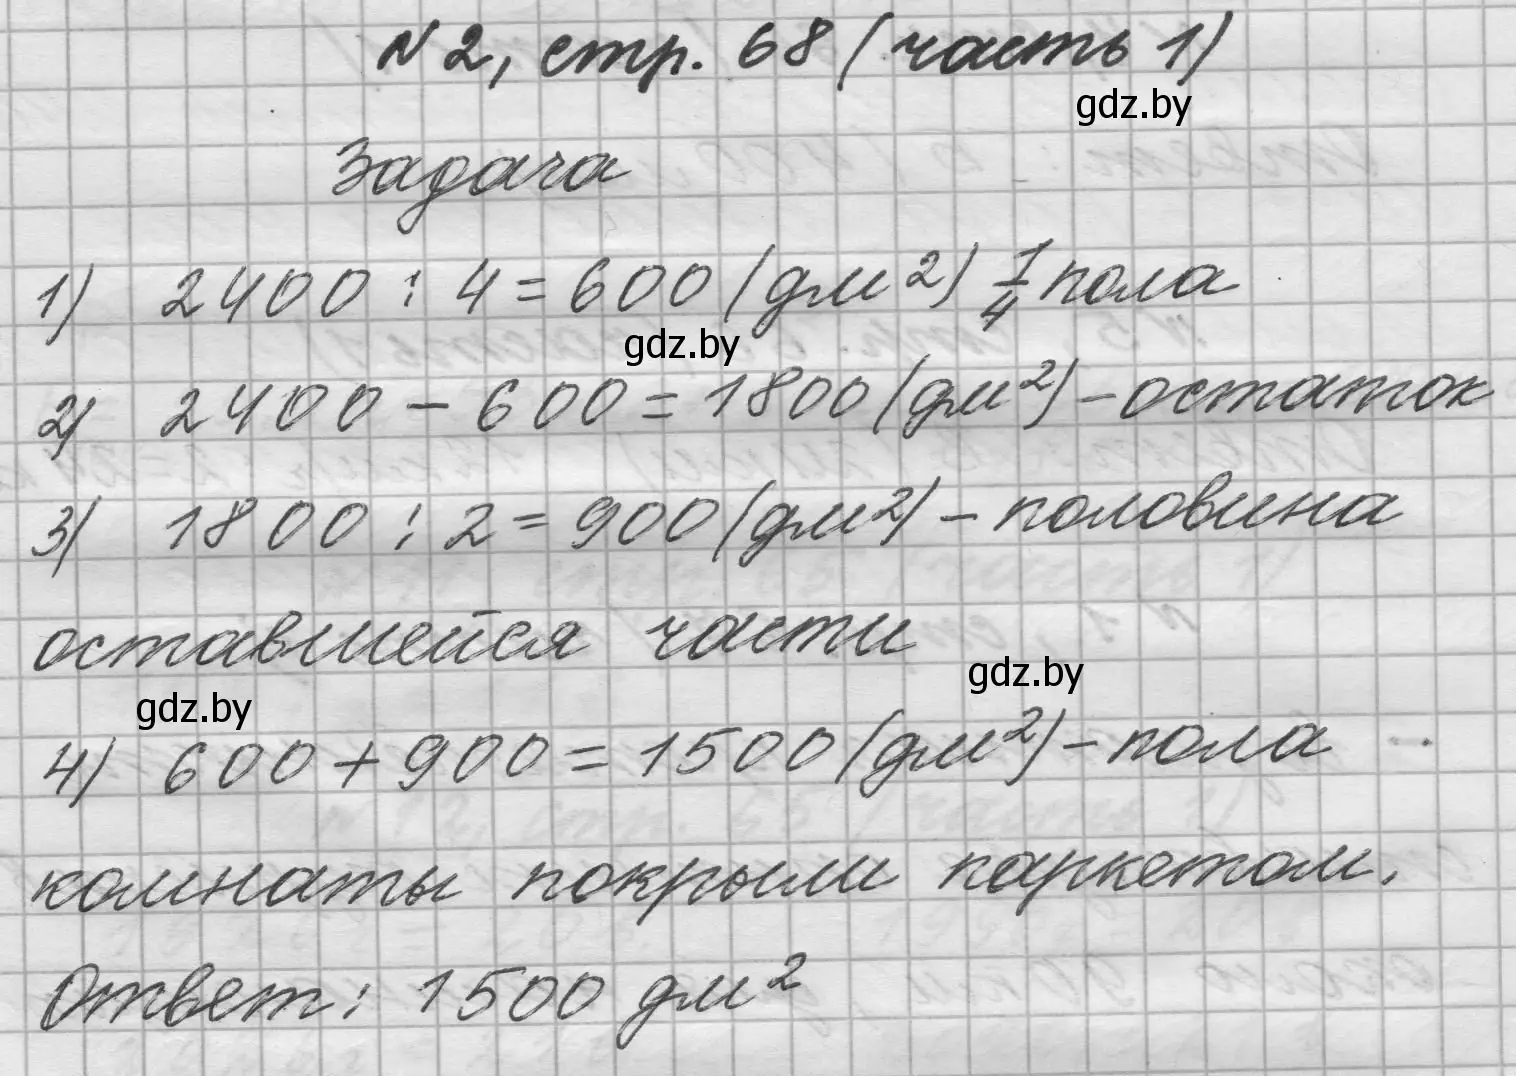 N 2, стр. 68 (часть 1)
gdz.by
Задача
1) 2400 : 4 = 600 (дм²) 1/4 пола
gdz.by
2) 2400 - 600 = 1800 (дм²) - остаток
3) 1800 : 2 = 900 (дм²) - половина
оставшейся части
gdz.by
gdz.by
4) 600 + 900 = 1500 (дм²) - пола
комнаты покрыли паркетом.
Ответ: 1500 дм²